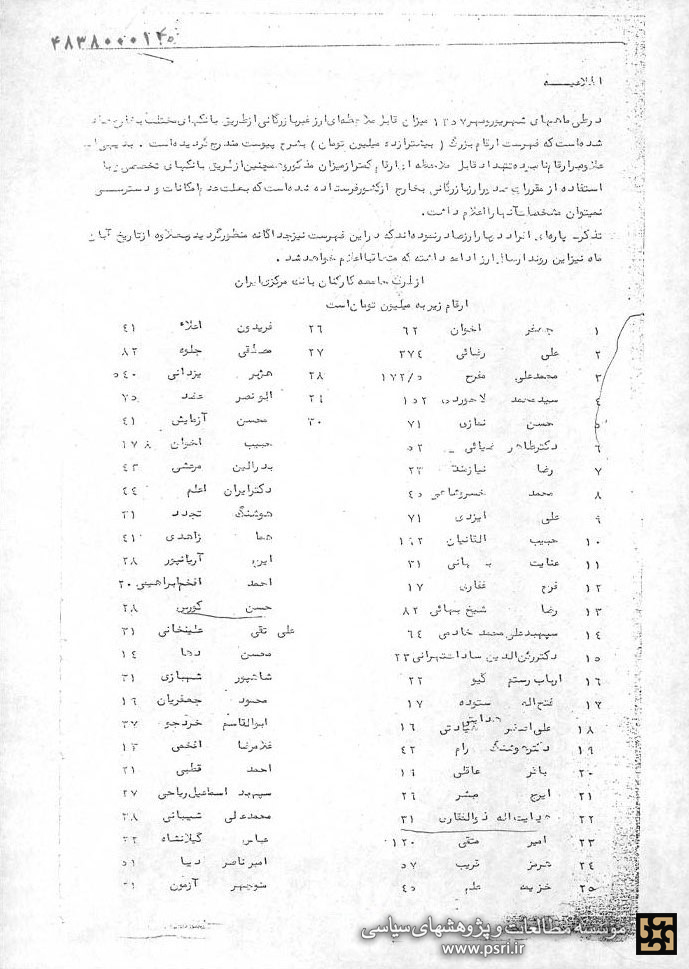 ۴۸۳۸۰۰۰۱۲۵
اطلاعیه
در طی ماههای شهریور و مهر ۱۳۵۷ میزان قابل ملاحظه‌ای ارز غیر بازرگانی از طریق بانکهای مختلف بخارج
شده است که فهرست ارقام بزرگ ( بیشتر از ده میلیون تومان ) بشرح پیوست مندرج گردیده است . بدیهی است
علاوه بر ارقام نامبرده تعداد قابل ملاحظه ای ارقام کمتر از میزان مذکور و همچنین از طریق بانکهای تخصصی و با
استفاده از مقررات ارز بازرگانی بخارج از کشور فرستاده شده است که بعلت عدم امکانات و دسترسی
نمیتوان مشخصات آنها را اعلام داشت.
تذکر- پاره‌ای افراد دو بار ارز صادر نموده‌اند که در این فهرست نیز جداگانه منظور گردیده و بعلاوه از تاریخ آبان
ماه نیز این روند ارسال ارز ادامه داشته که متعاقبا اعلام خواهد شد .
از طرف جامعه کارکنان بانک مرکزی ایران
ارقام زیر به میلیون تومان است
۱ جعفر اخوان ۶۲
۲ علی رضائی ۲۷۴
۳ محمدعلی مفرح ۱۷۲/۵
۴ سیدمحمد لاجوردی ۱۵۲
۵ حسن نمازی ۷۱
۶ دکتر طاهر ضیائی ۵۲
۷ رضا نیازمند ۲۳
۸ محمد خسروشاهی ۴۵
۹ علی ایزدی ۷۱
۱۰ حبیب القانیان
۱۱ عنایت بهبهانی ۳۱
۱۲ فرخ غفاری ۱۷
۱۳ رضا شیخ بهائی ۸۲
۱۴ سپهبد علی محمد خادمی ۶۴
۱۵ دکتر رکن الدین سادات تهرانی ۲۳
۱۶ ارباب رستم گیو ۲۲
۱۷ فتح اله ستوده ۱۷
۱۸ علی اصغر ۱۶
۱۹ دکتر هوشنگ رام ۴۲
۲۰ باقر عاقلی ۱۶
۲۱ ایرج مبشر ۲۶
۲۲ هدایت اله ذوالفقاری ۳۱
۲۳ امیر متقی ۱۲۰
۲۴ هرمز قریب ۵۷
۲۵ خزیمه علم ۴۵
۲۶ فریدون اعلاء ۴۱
۲۷ مصدقی جلوه ۸۲
۲۸ هژبر یزدانی ۵۴۰
۲۹ ابو نصر عضد ۷۵
۳۰ محسن آزمایش ۴۱
حبیب اخوان ۱۷
بدرالدین مرعشی ۴۳
دکتر ایران اعلم ۴۴
هوشنگ تجدد ۳۱
هما زاهدی ۴۱
ایرج آریانپور ۲۸
احمد افخم ابراهیمی ۲۰
حسن کورس ۲۸
علی نقی علیخانی ۳۱
محسن دها ۱۴
شاهپور شهبازی ۳۱
محمود جعفریان ۱۶
ابوالقاسم خردجو ۳۷
غلامرضا افخمی ۱۳
احمد قطبی ۲۱
سپهبد اسماعیل ریاحی ۲۷
محمدعلی شیبانی ۳۸
عباس گیلانشاه ۳۲
امیر ناصر دیبا ۵۱
منوچهر آزمون ۳۱
موسسه مطالعات و پژوهشهای سیاسی
www.psri.ir